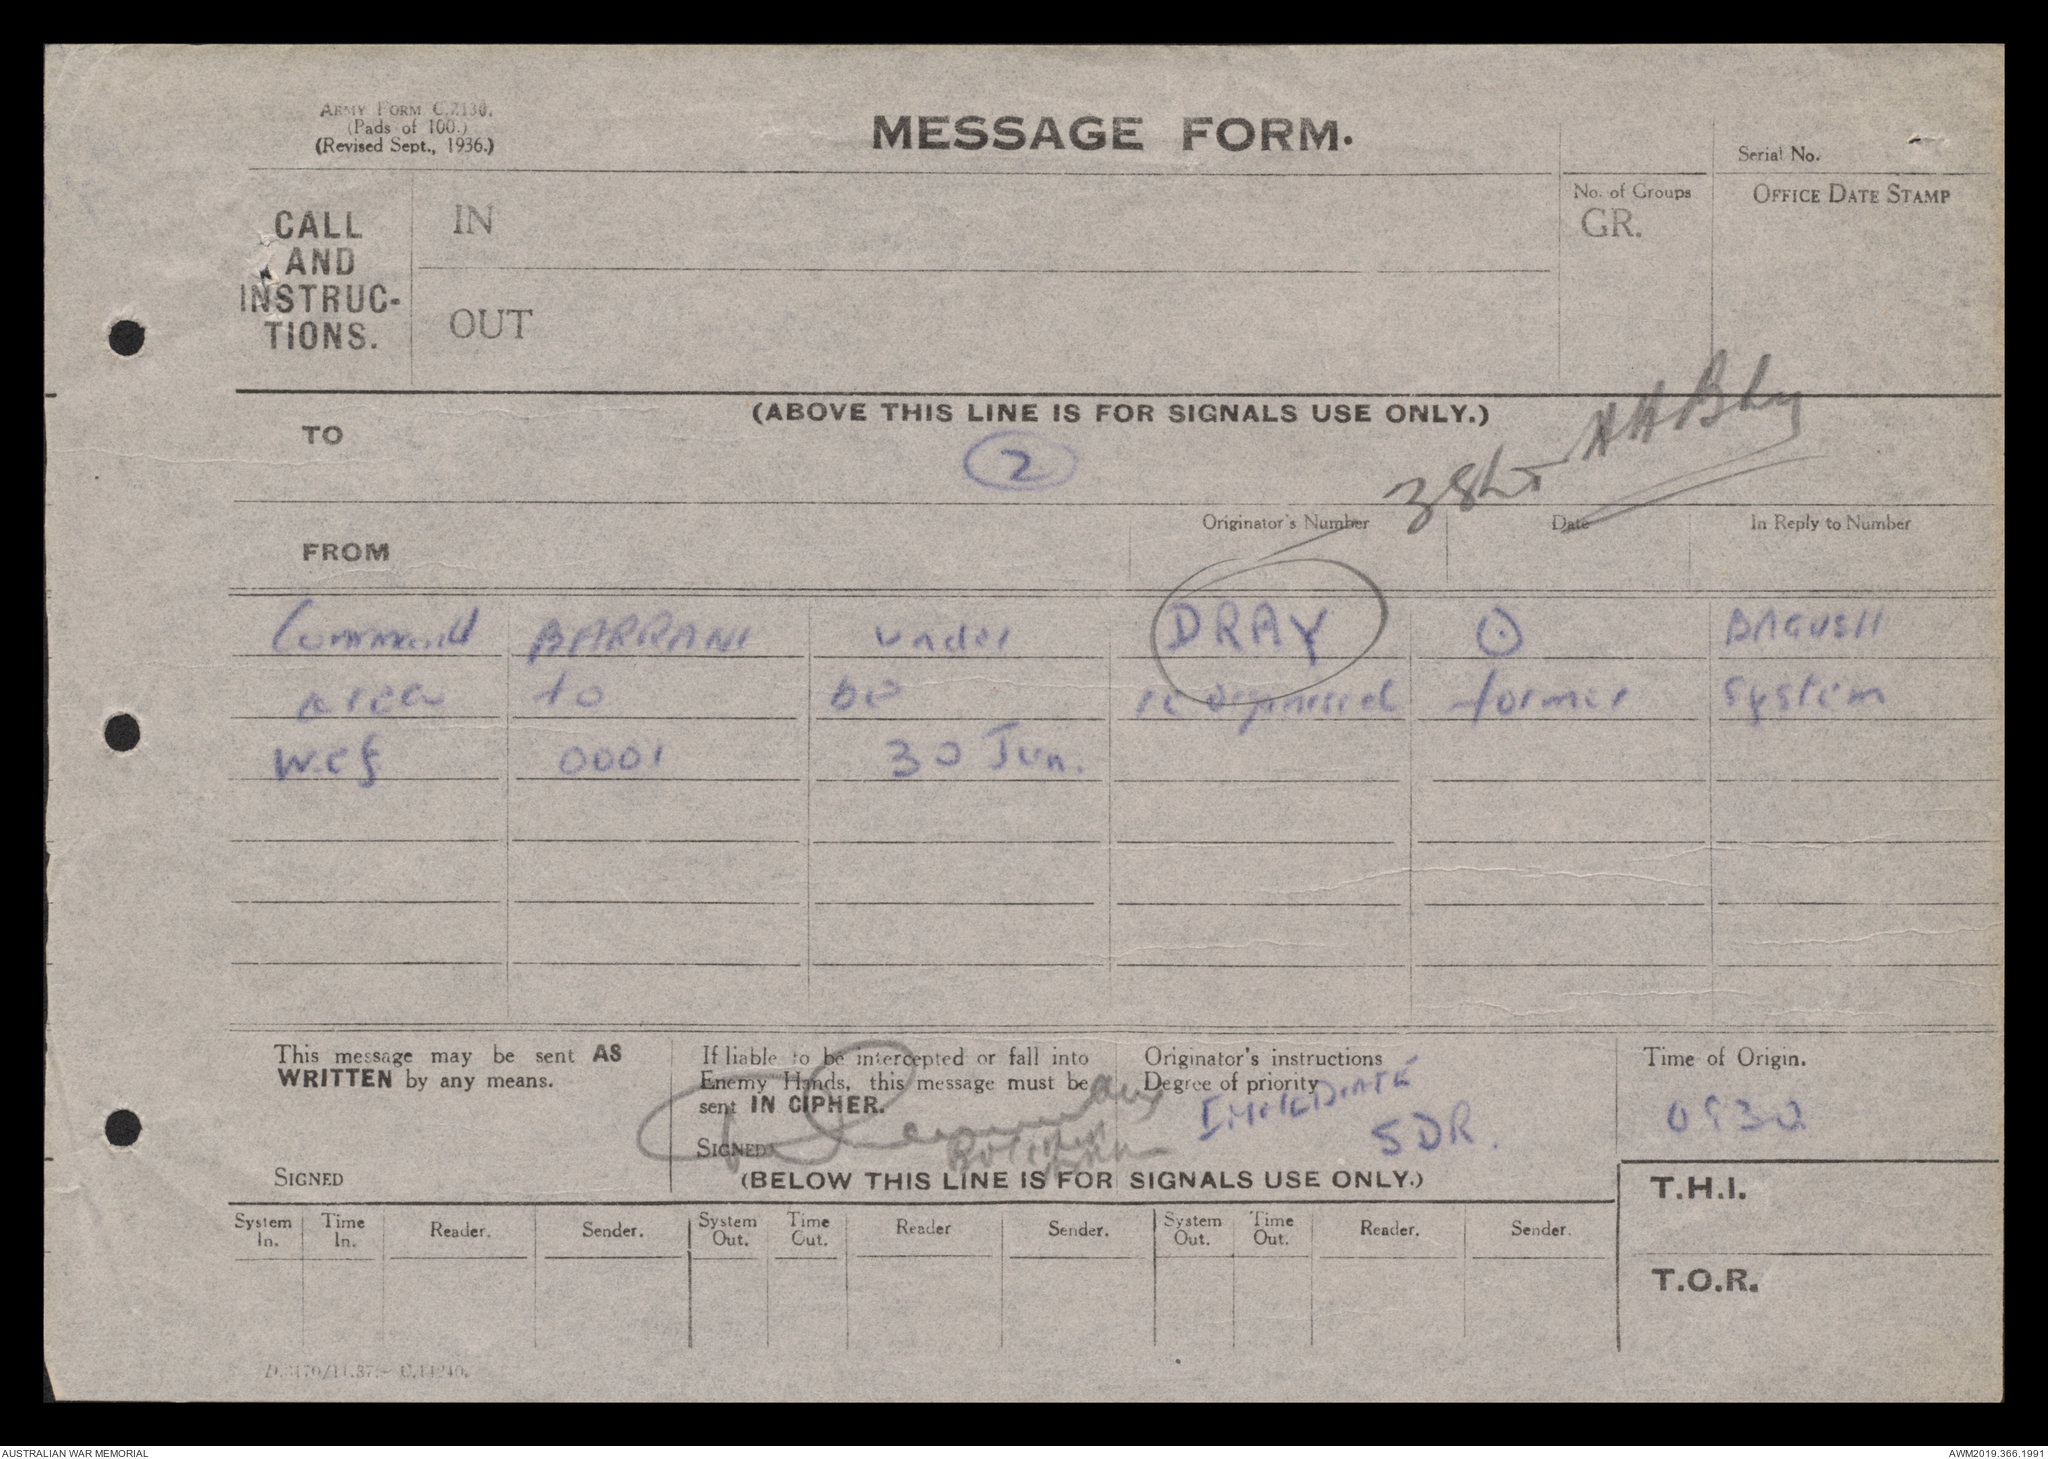 ARMY FORM C.2130.
(Pads of 100.)
(Revised Sept., 1936.)
MESSAGE FORM.
Serial No.
No. of Groups
GR.
OFFICE DATE STAMP
CALL
AND
INSTRUC-
TIONS.
IN
OUT
(ABOVE THIS LINE IS FOR SIGNALS USE ONLY.)
TO
2
FROM
Originator's Number
Date
In Reply to Number
Command BARRANI under DRAY BAGUSH
area to be reorganised former system
wef 0001 30 Jun.
This message may be sent AS
WRITTEN by any means.
SIGNED
If liable to be intercepted or fall into
Enemy Hands, this message must be
sent IN CIPHER.
SIGNED
Originator's instructions
Degree of priority
IMMEDIATE
SDR.
Time of Origin.
0930
(BELOW THIS LINE IS FOR SIGNALS USE ONLY.)
T.H.I.
T.O.R.
System In. Time In. Reader. Sender. System Out. Time Out. Reader Sender. System Out. Time Out. Reader. Sender.
AUSTRALIAN WAR MEMORIAL
AWM2019.366.1991